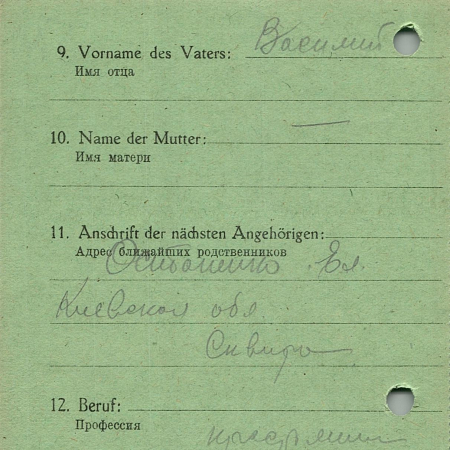 9. Vorname des Vaters: Василий
Имя отца
10. Name der Mutter: —
Имя матери
11. Anschrift der nächsten Angehörigen:
Адрес ближайших родственников
Ел.
Киевская обл.
Сквира
12. Beruf:
Профессия